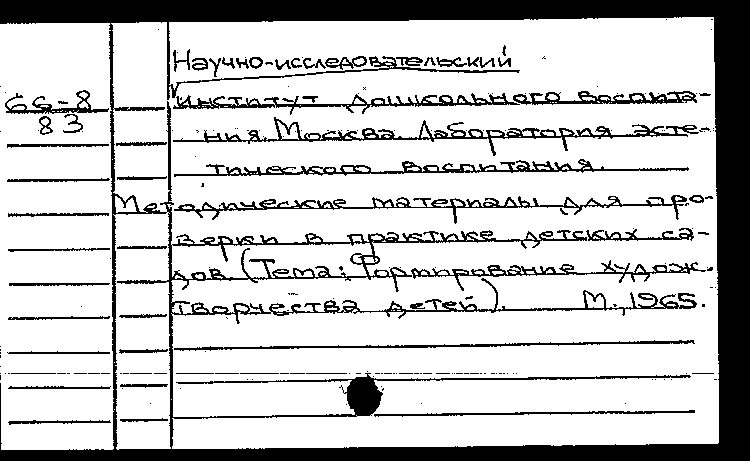 Научно-исследовательский
66-8
83
институт дошкольного воспита-
ния. Москва. Лаборатория эсте-
тического воспитания.
Методические материалы для про-
верки в практике детских са-
дов (Тема: Формирование худож.
творчества детей). М., 1965.